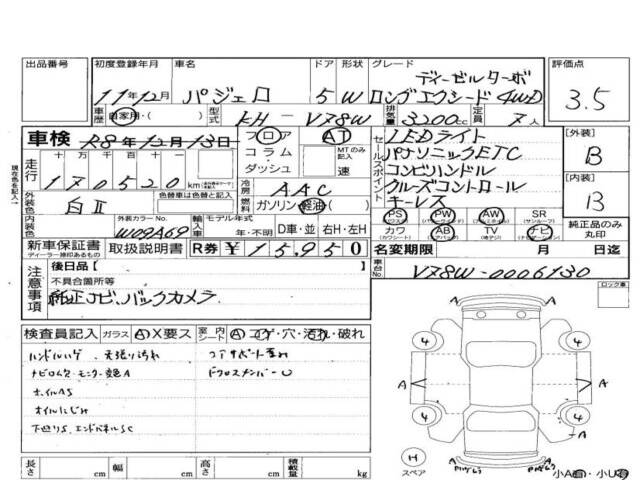 出品番号
初度登録年月 11年12月
車名 パジェロ
ドア 5
形状 W
グレード ディーゼルターボ
ロングエクシード4WD
評価点 3.5
車歴 自家用・( )
型式 KH-V78W
排気量 3200cc
定員 7人
車検 R8年12月13日
フロア コラム・ダッシュ
AT
MTのみ記入 速
セールスポイント
LEDライト
パナソニックETC
コンビハンドル
クルーズコントロール
キーレス
[外装] B
[内装] B
現在色を記入
走行 十万千百十
170520km
冷房 AAC
燃料 ガソリン・軽油・( )
外装色 白II
色替車は色替と記入
内装色
外装カラーNo. W09A69
輸入車 モデル年式 年・不明
D車・並 右H・左H
PS PW AW SR(サンルーフ)
カワ(カワシート) AB TV(地デジ) ナビ
純正品のみ丸印
新車保証書 取扱説明書
ディーラー捺印あるもの
R券 ¥15,950
名変期限 月 日迄
注意事項
後日品[ ]
不具合箇所等
純正ナビ、バックカメラ
車台No. V78W-0006130
ロック車
検査員記入 ガラス A X要ス
室内シート A コゲ・穴・汚れ・破れ
ハンドルハゲ、天張り汚れ
ホイルAS
オイルにじみ
下廻りS、エンドパネルSC
4
4
A
A
A
4
4
H
スペア
A
小A有・小U有
長さ cm
幅 cm
高さ cm
積載量 kg